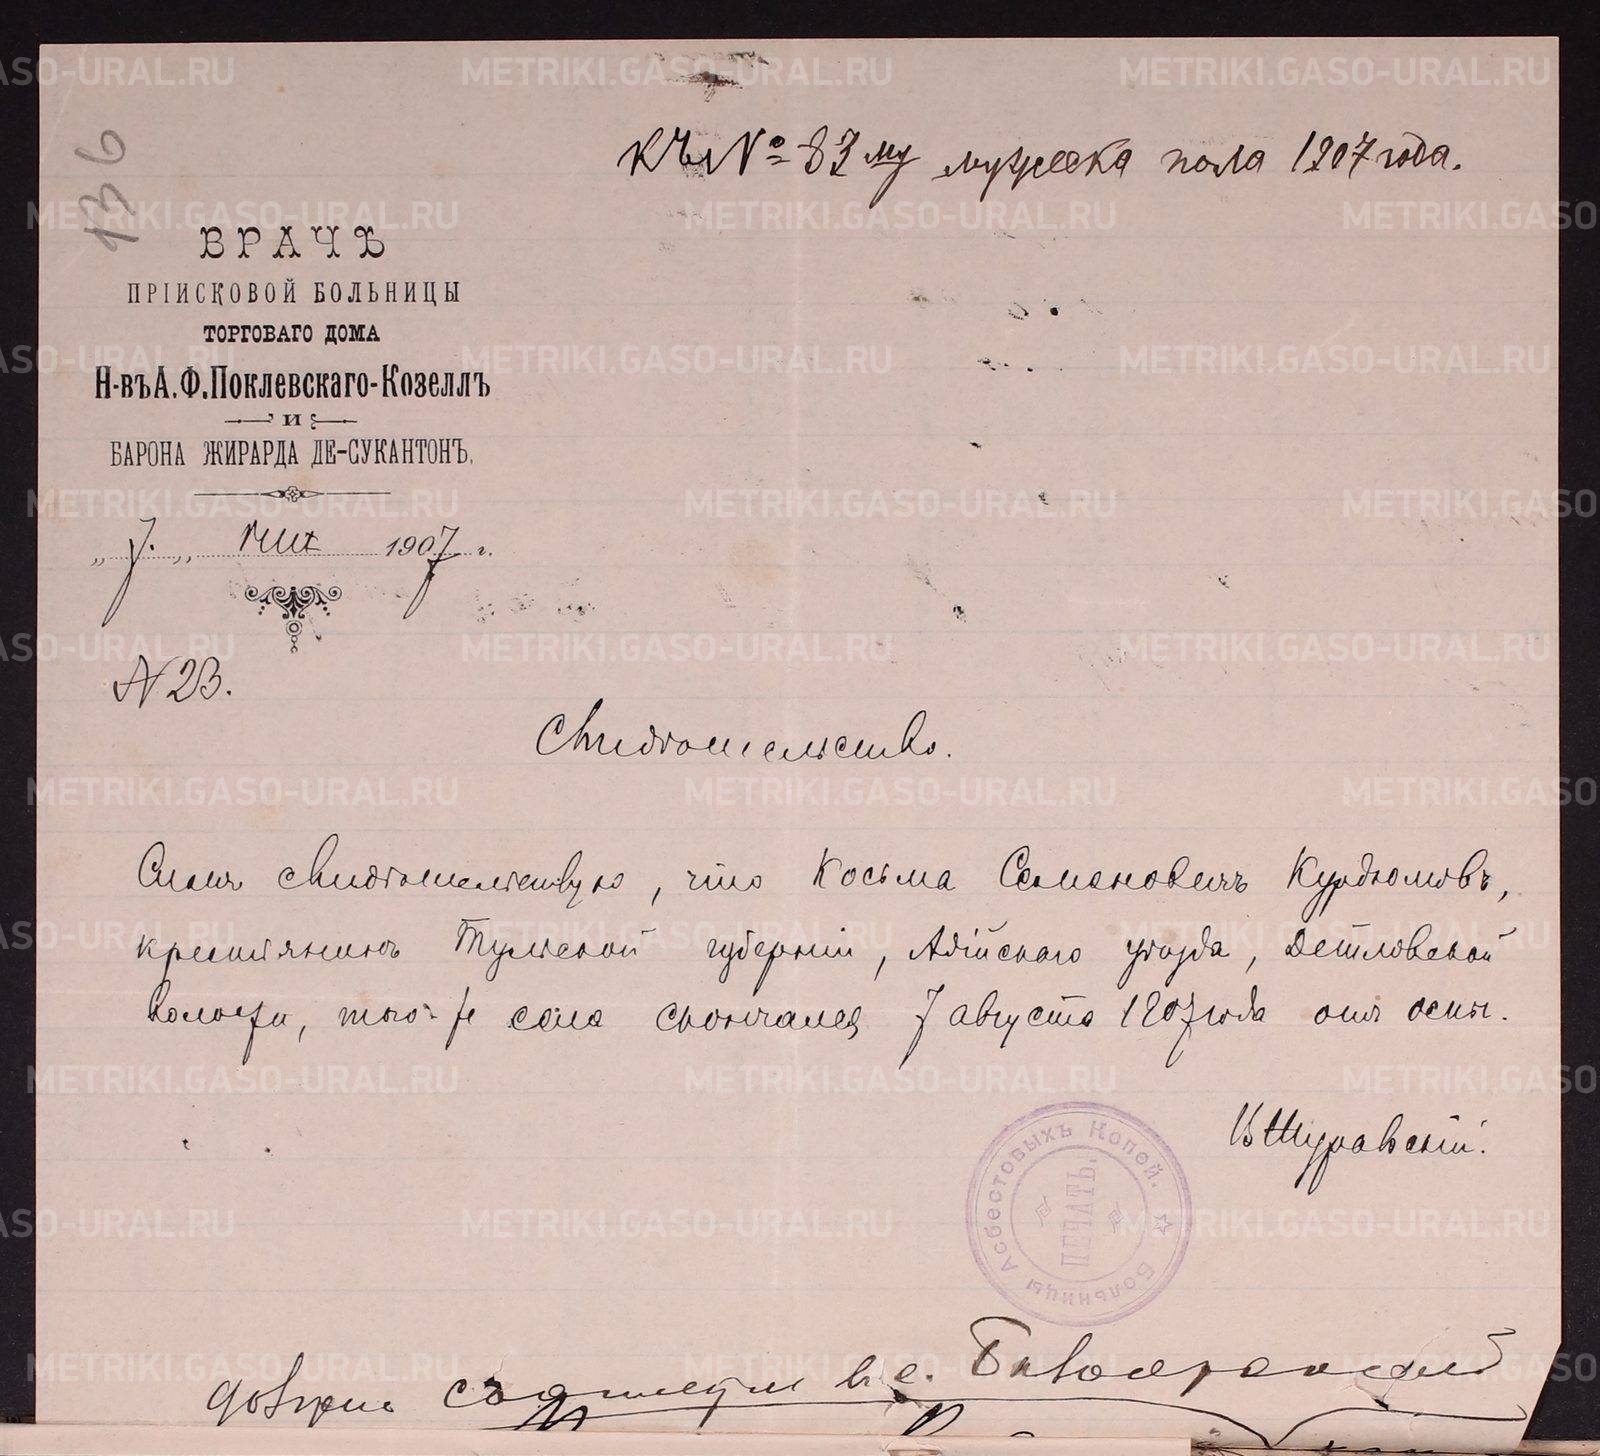 136
Къ № 83му мужеска пола 1907 года.
ВРАЧЪ
ПРІИСКОВОЙ БОЛЬНИЦЫ
ТОРГОВАГО ДОМА
Н-въ А.Ф.Поклевскаго-Козеллъ
И
БАРОНА ЖИРАРДА ДЕ-СУКАНТОНЪ.
„ 7. „ VIII 1907 г.
N 23.
Свидѣтельство.
Симъ свидѣтельствую, что Косьма Семеновичъ Курдюмовъ,
крестьянинъ Тульской губерніи, уѣзда,
волости, того-же села скончался 7 августа 1907 года отъ оспы.
Больницы Асбестовыхъ Копей.
ПЕЧАТЬ.
METRIKI.GASO-URAL.RU